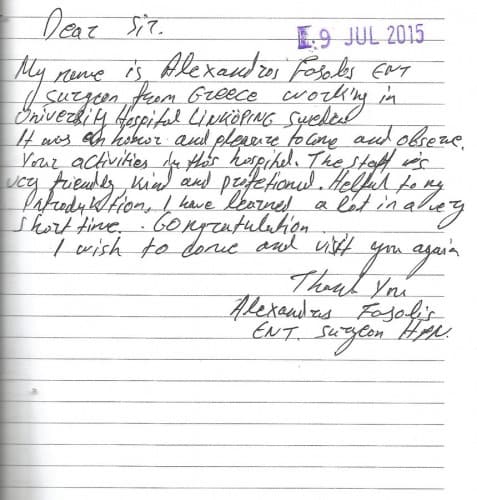 Dear Sir.
9 JUL 2015
My name is Alexandros Fasolis ENT
surgeon from Greece working in
University Hospital LINKÖPING Sweden
It was an honor and pleasure to come and observe.
Your activities in this hospital. The staff is
very friendly, kind and profetional. Helful to my
Introduktion, I have learned a lot in a very
short time. Congratulation.
I wish to come and visit you again
Thank You
Alexandros Fasolis
ENT. surgeon